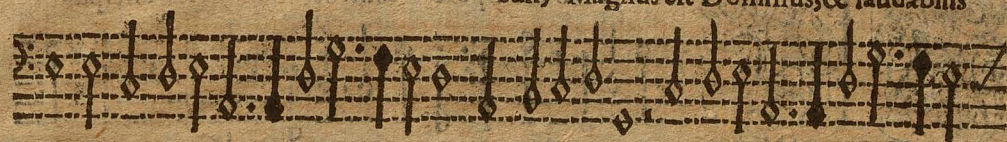 Magnus est Dominus, & laudabilis